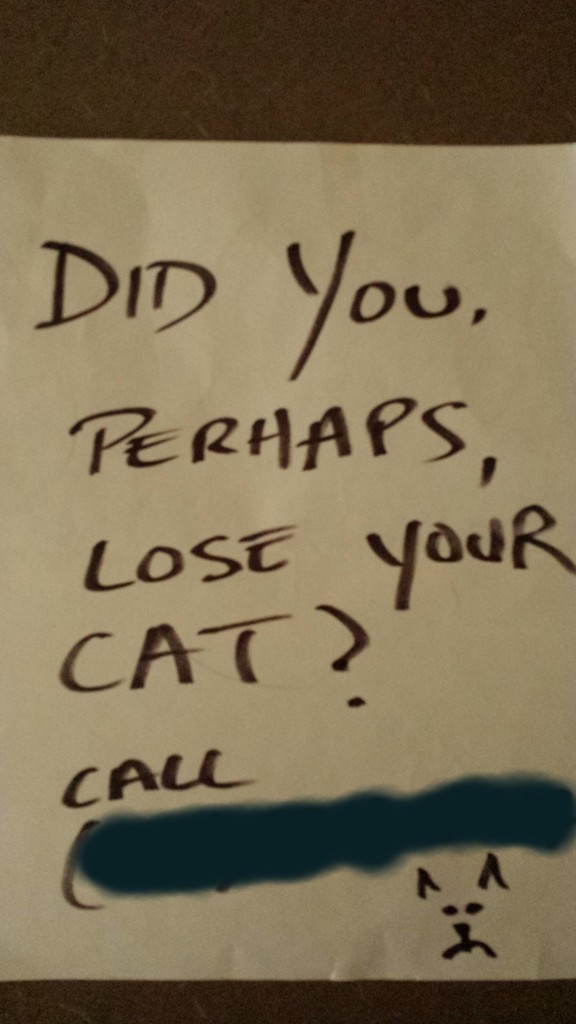 DID YOU,
PERHAPS,
LOSE YOUR
CAT?
CALL
(